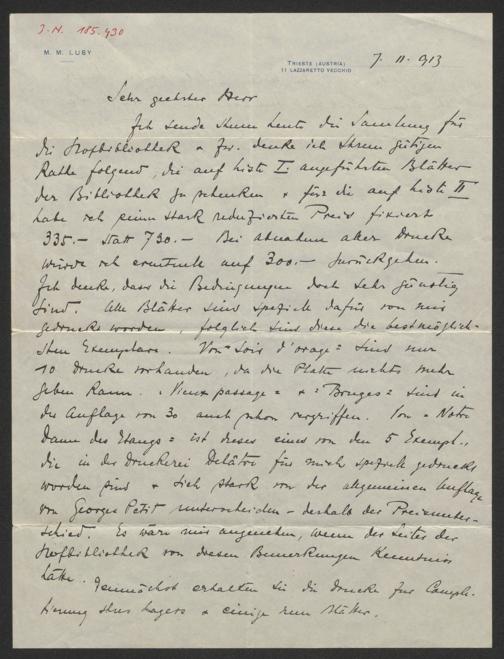 J.N. 185.430
M. M. LUBY
TRIESTE (AUSTRIA)
11 LAZZARETTO VECCHIO
7. II. 913
Sehr geehrter Herr
Ich sende Ihnen heute die Samlung für
die Hofbibliothek & zw. denke ich Ihrem gütigen
Rathe folgend, die auf Liste I. angeführten Blätter
der Bibliothek zu schenken & für die auf Liste II
habe ich einen stark reduzierten Preis fixiert
335.- statt 730.- Bei Abnahme aller Drucke
würde ich eventuell auf 300.- zurückgehen.
Ich denke, dass die Bedingungen doch sehr günstig
sind. Alle Blätter sind speziell dafür von mir
gedruckt worden, folglich sind diese die bestmöglich-
sten Exemplare. Von "Soir d'orage" sind nur
10 Drucke vorhanden, da die Platte nichts mehr
geben kann. "Vieux passage" & "Bruges" sind in
der Auflage von 30 auch schon vergriffen. Von "Notre
Dame des Etangs" ist dieses eines von den 5 Exempl.,
die in der Druckerei Delâtre für mich speziell gedruckt
worden sind & sich stark von der allgemeinen Auflage
von Georges Petit unterscheiden - deshalb der Preisunter-
schied. Es wäre mir angenehm, wenn der Leiter der
Hofbibliothek von diesen Bemerkungen Kenntniss
hätte.
Demnächst erhalten Sie die Drucke zur Comple-
tierung Ihres Lagers & einige neue Blätter.